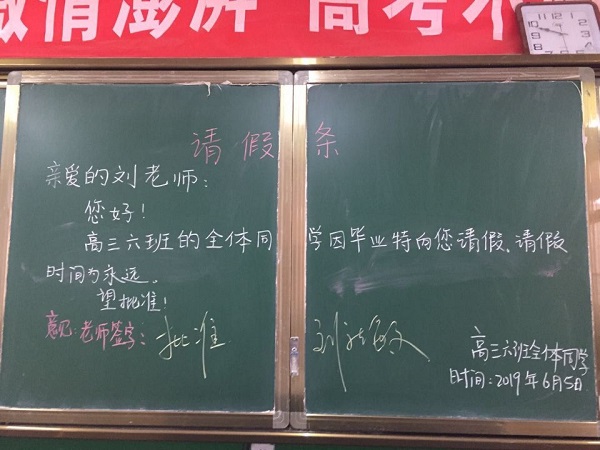 激情澎湃 高考不
请假条
亲爱的刘老师：
您好！
高三六班的全体同学因毕业特向您请假、请假
时间为永远。
望批准！
意见：老师签字：批准
高三六班全体同学
时间：2019年6月5日